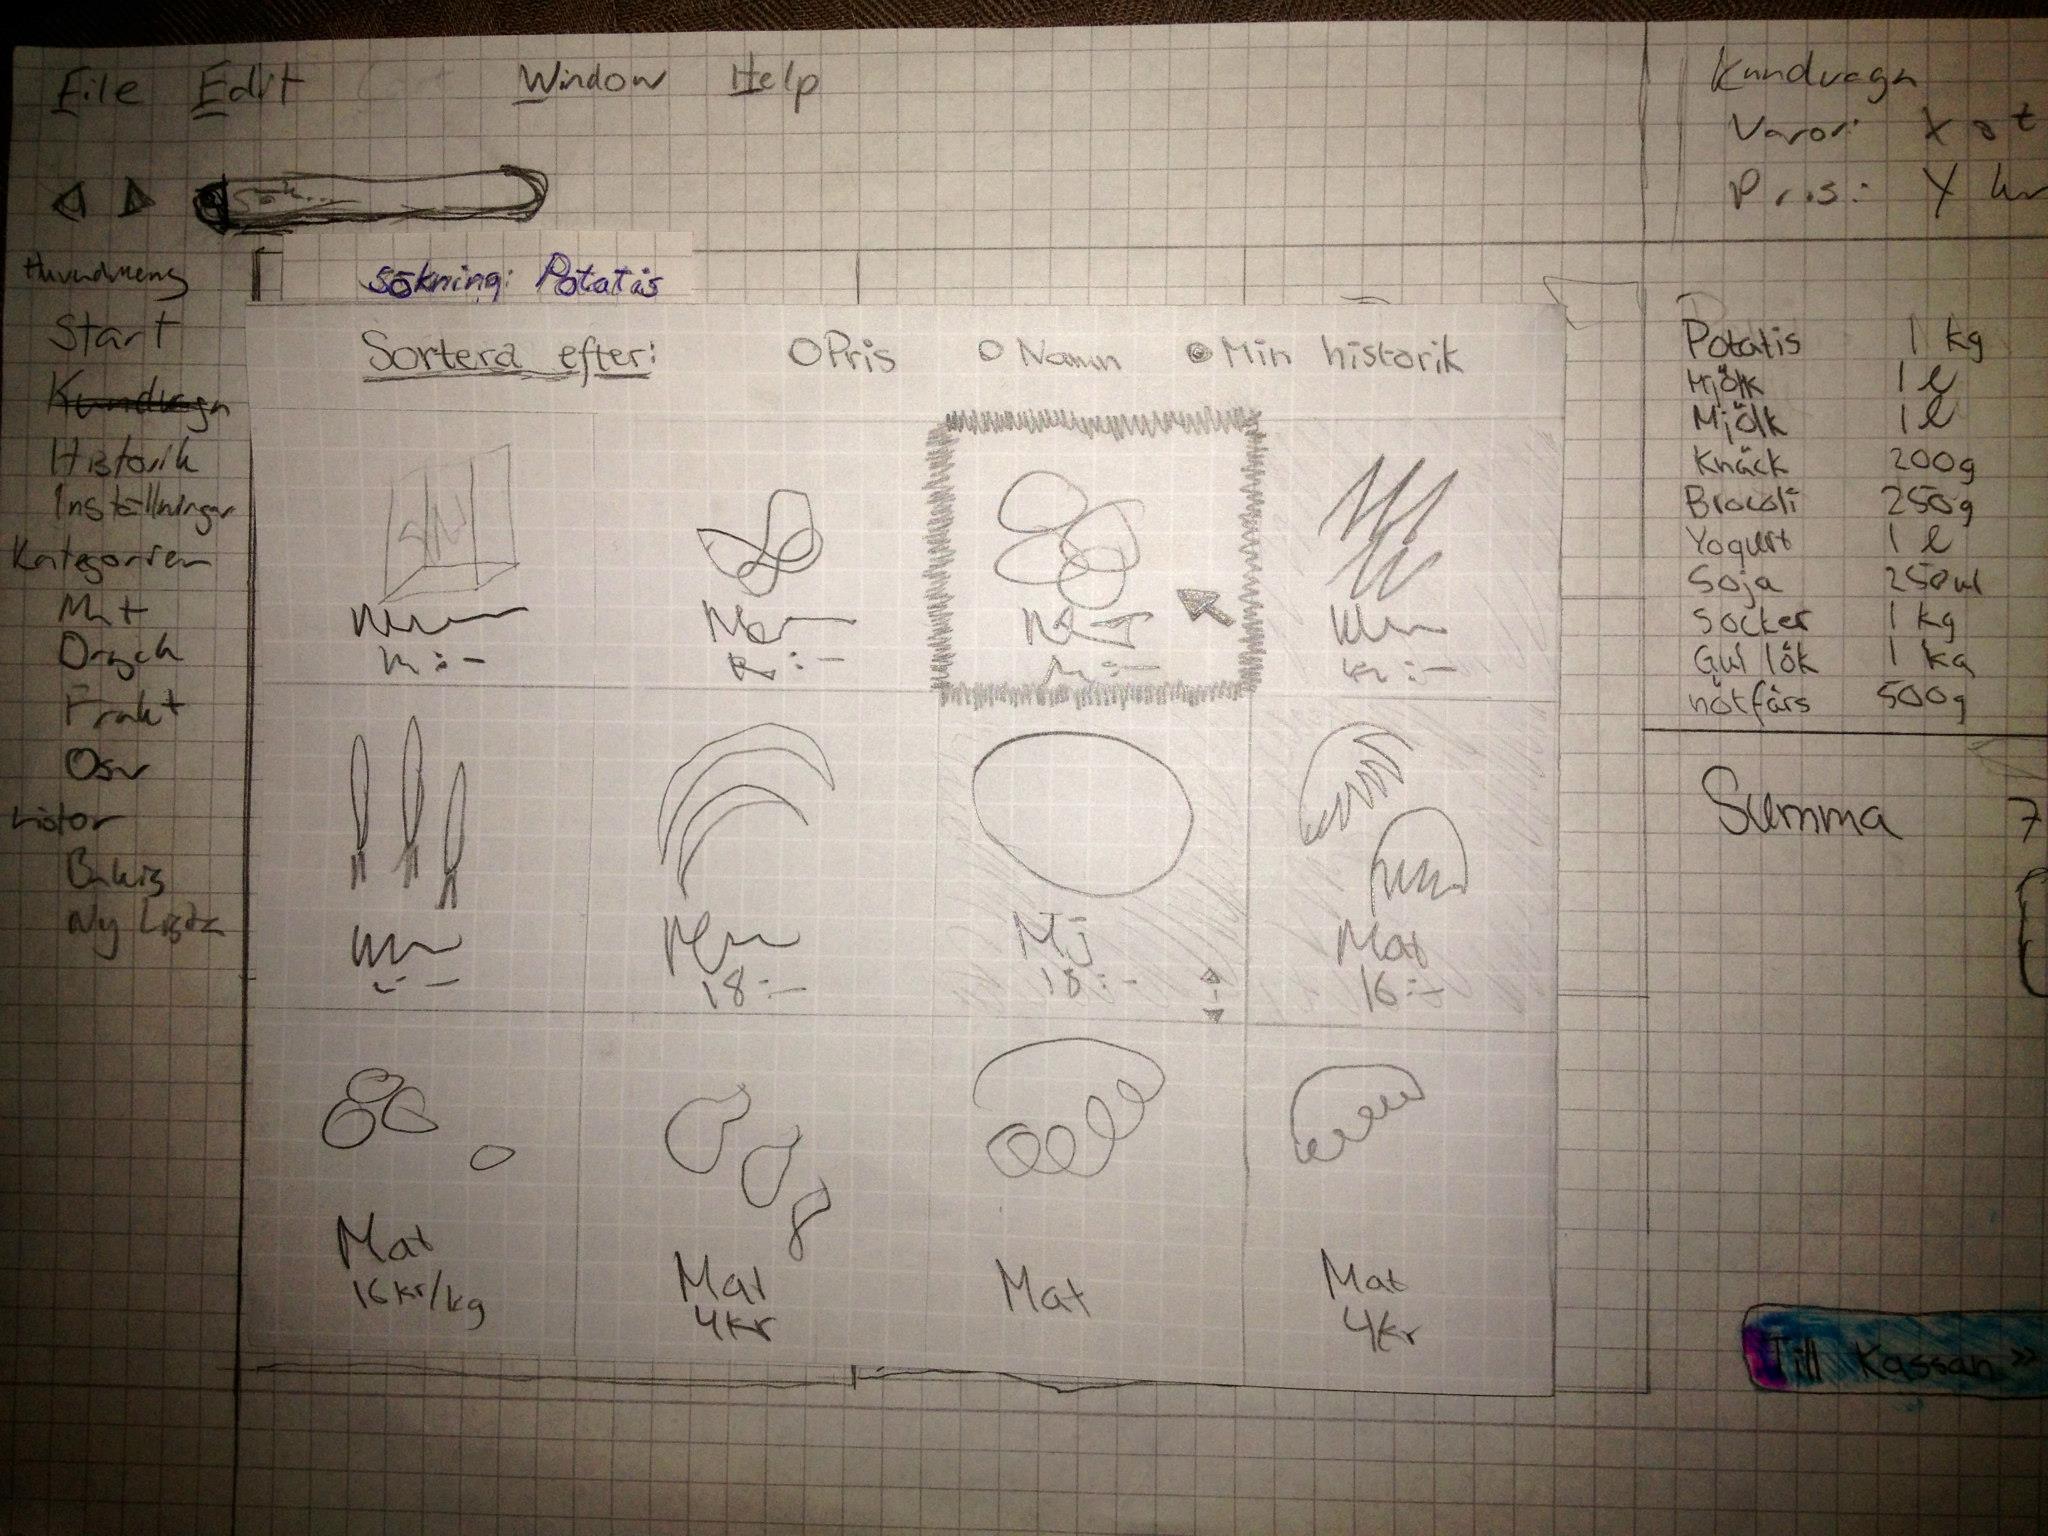 File Edit Window Help
Sök...
Kundvagn
Varor: X st
Pris: Y kr
Huvudmeny
Start
Kundvagn
Historik
Inställningar
Kategorier
Mat
Dryck
Frukt
Osv
Listor
Ny Lista
sökning: Potatis
Sortera efter: Pris Namn Min historik
:-
:-
:-
:-
18:-
Mj
18:-
Mat
16:-
Mat
16kr/kg
Mat
4kr
Mat
Mat
4kr
Potatis 1 kg
Mjölk 1 l
Mjölk 1 l
Knäck 200g
Brocoli 250g
Yogurt 1 l
Soja 250ml
Socker 1 kg
Gul lök 1 kg
nötfärs 500g
Summa 7
Till Kassan »